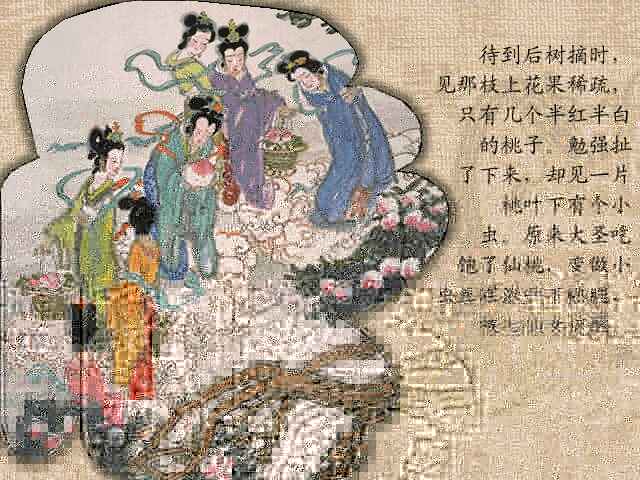 待到后树摘时，
见那枝上花果稀疏，
只有几个半红半白
的桃子。勉强扯
了下来，却见一片
桃叶下有个小
虫，原来大圣吃
饱了仙桃，变做小
虫